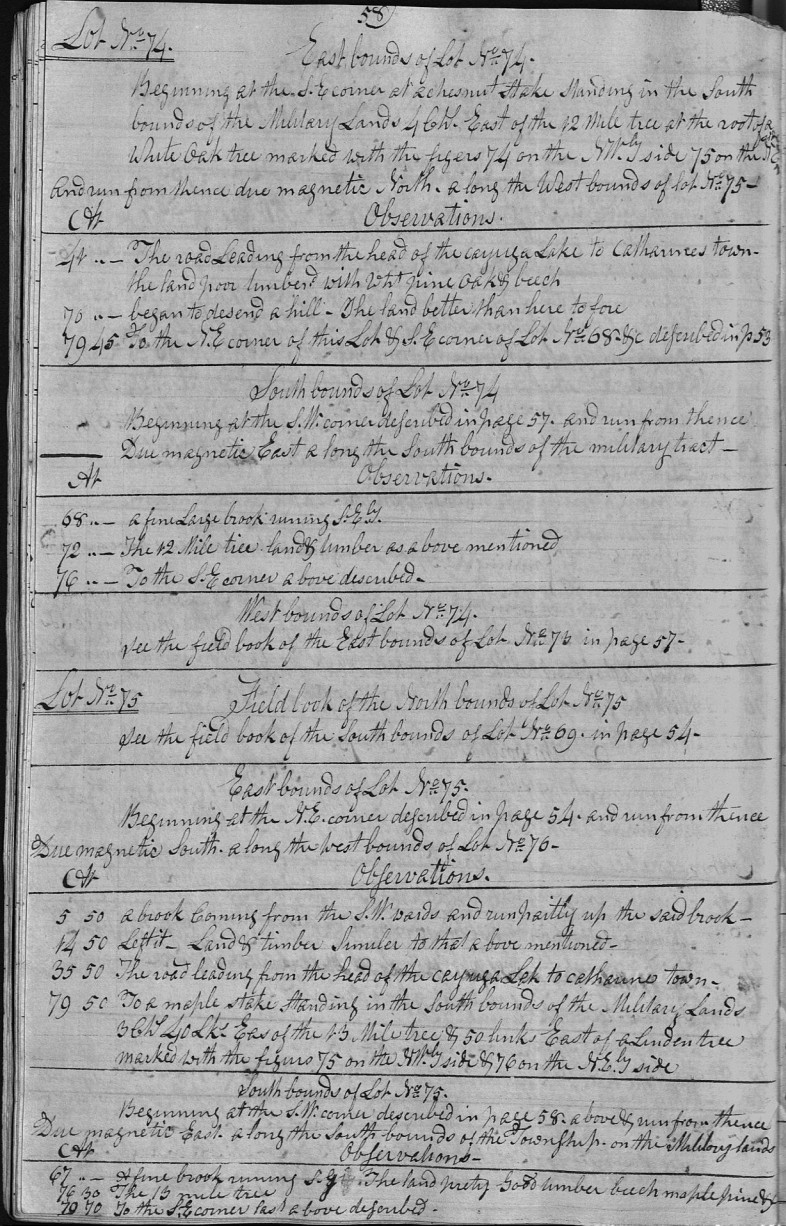 58
Lot No. 74.
East bounds of Lot No. 74.
Beginning at the S.E corner at a chesnut stake standing in the South
bounds of the Military Lands 4 Chs. East of the 12 Mile tree at the root of a
White Oak tree marked with the figers 74 on the N.W.ly side 75 on the
and run from thence due magnetic North. a long the West bounds of lot No. 75-
At Observations.
41 .. - The road Leading from the head of the cayuga Lake to Catharines town-
the land poor timberd with Wht pine Oak & beech
70 .. - began to desend a hill - The land better than here to fore
79 45 To the N.E corner of this Lot & S.E corner of Lot No. 68 &c described in p 53
South bounds of Lot No. 74
Beginning at the S.W. corner described in page 57. and run from thence
Due magnetic East a long the South bounds of the military tract -
At Observations.
68 .. - a fine Large brook runing S.E.ly.
72 .. - The 12 Mile tree land & timber as above mentioned
76 .. - To the S.E corner above described -
West bounds of Lot No. 74.
see the field book of the East bounds of Lot No. 73 in page 57-
Lot No. 75
Field book of the North bounds of Lot No. 75
see the field book of the South bounds of Lot No. 69. in page 54-
East bounds of Lot No. 75.
Beginning at the N.E. corner described in page 54. and run from thence
Due magnetic South. a long the West bounds of Lot No. 76-
At Observations.
5 50 a brook Coming from the S.W. wards and run partly up the said brook -
14 50 Left it - Land & timber Similer to that above mentioned -
35 50 The road leading from the head of the cayuga Lak to catharines town-
79 50 To a maple stake standing in the South bounds of the Military Lands
3 Chs. 40 Lks. Eas of the 13 Mile tree & 50 links East of a Linden tree
marked with the figures 75 on the N.W.ly side & 76 on the N.E.ly side
South bounds of Lot No. 75.
Beginning at the S.W. corner described in page 58. above & run from thence
Due magnetic East. a long the South bounds of the Township. on the Military lands
At Observations -
67 .. - A fine brook runing S. The land prety Good timber beech maple pine &
76 30 The 13 mile tree
79 70 To the S.E corner last above described -